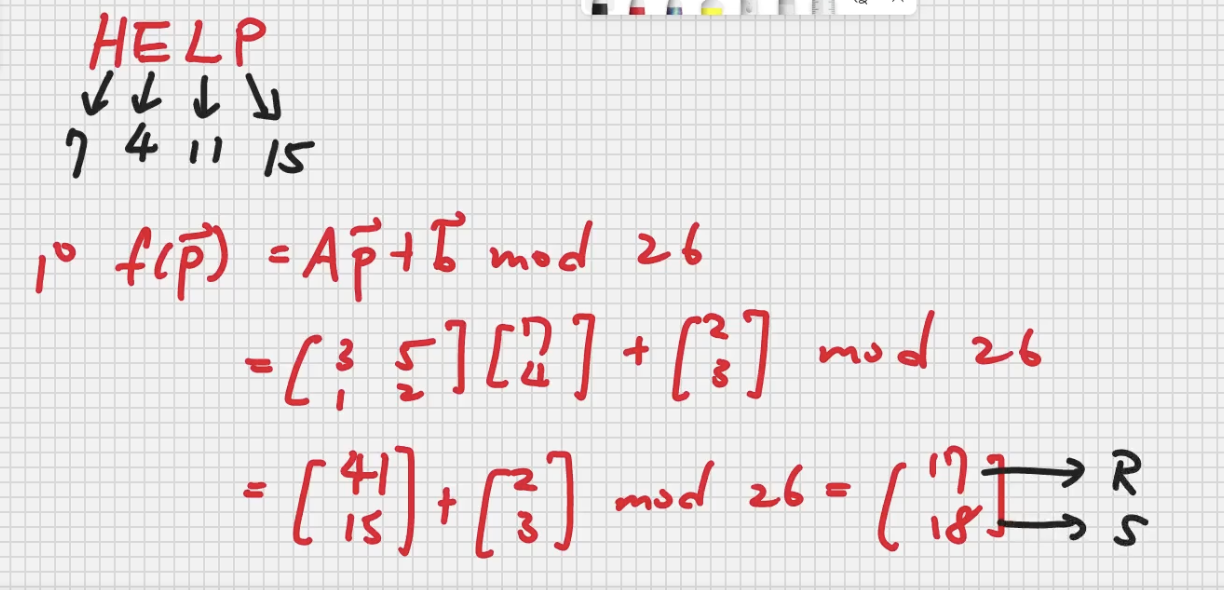 HELP
↓ ↓ ↓ ↓
7 4 11 15
1° f(p⃗) = Ap⃗ + b⃗ mod 26
= [3 5; 1 2] [7; 4] + [2; 3] mod 26
= [41; 15] + [2; 3] mod 26 = [17; 18] → R → S